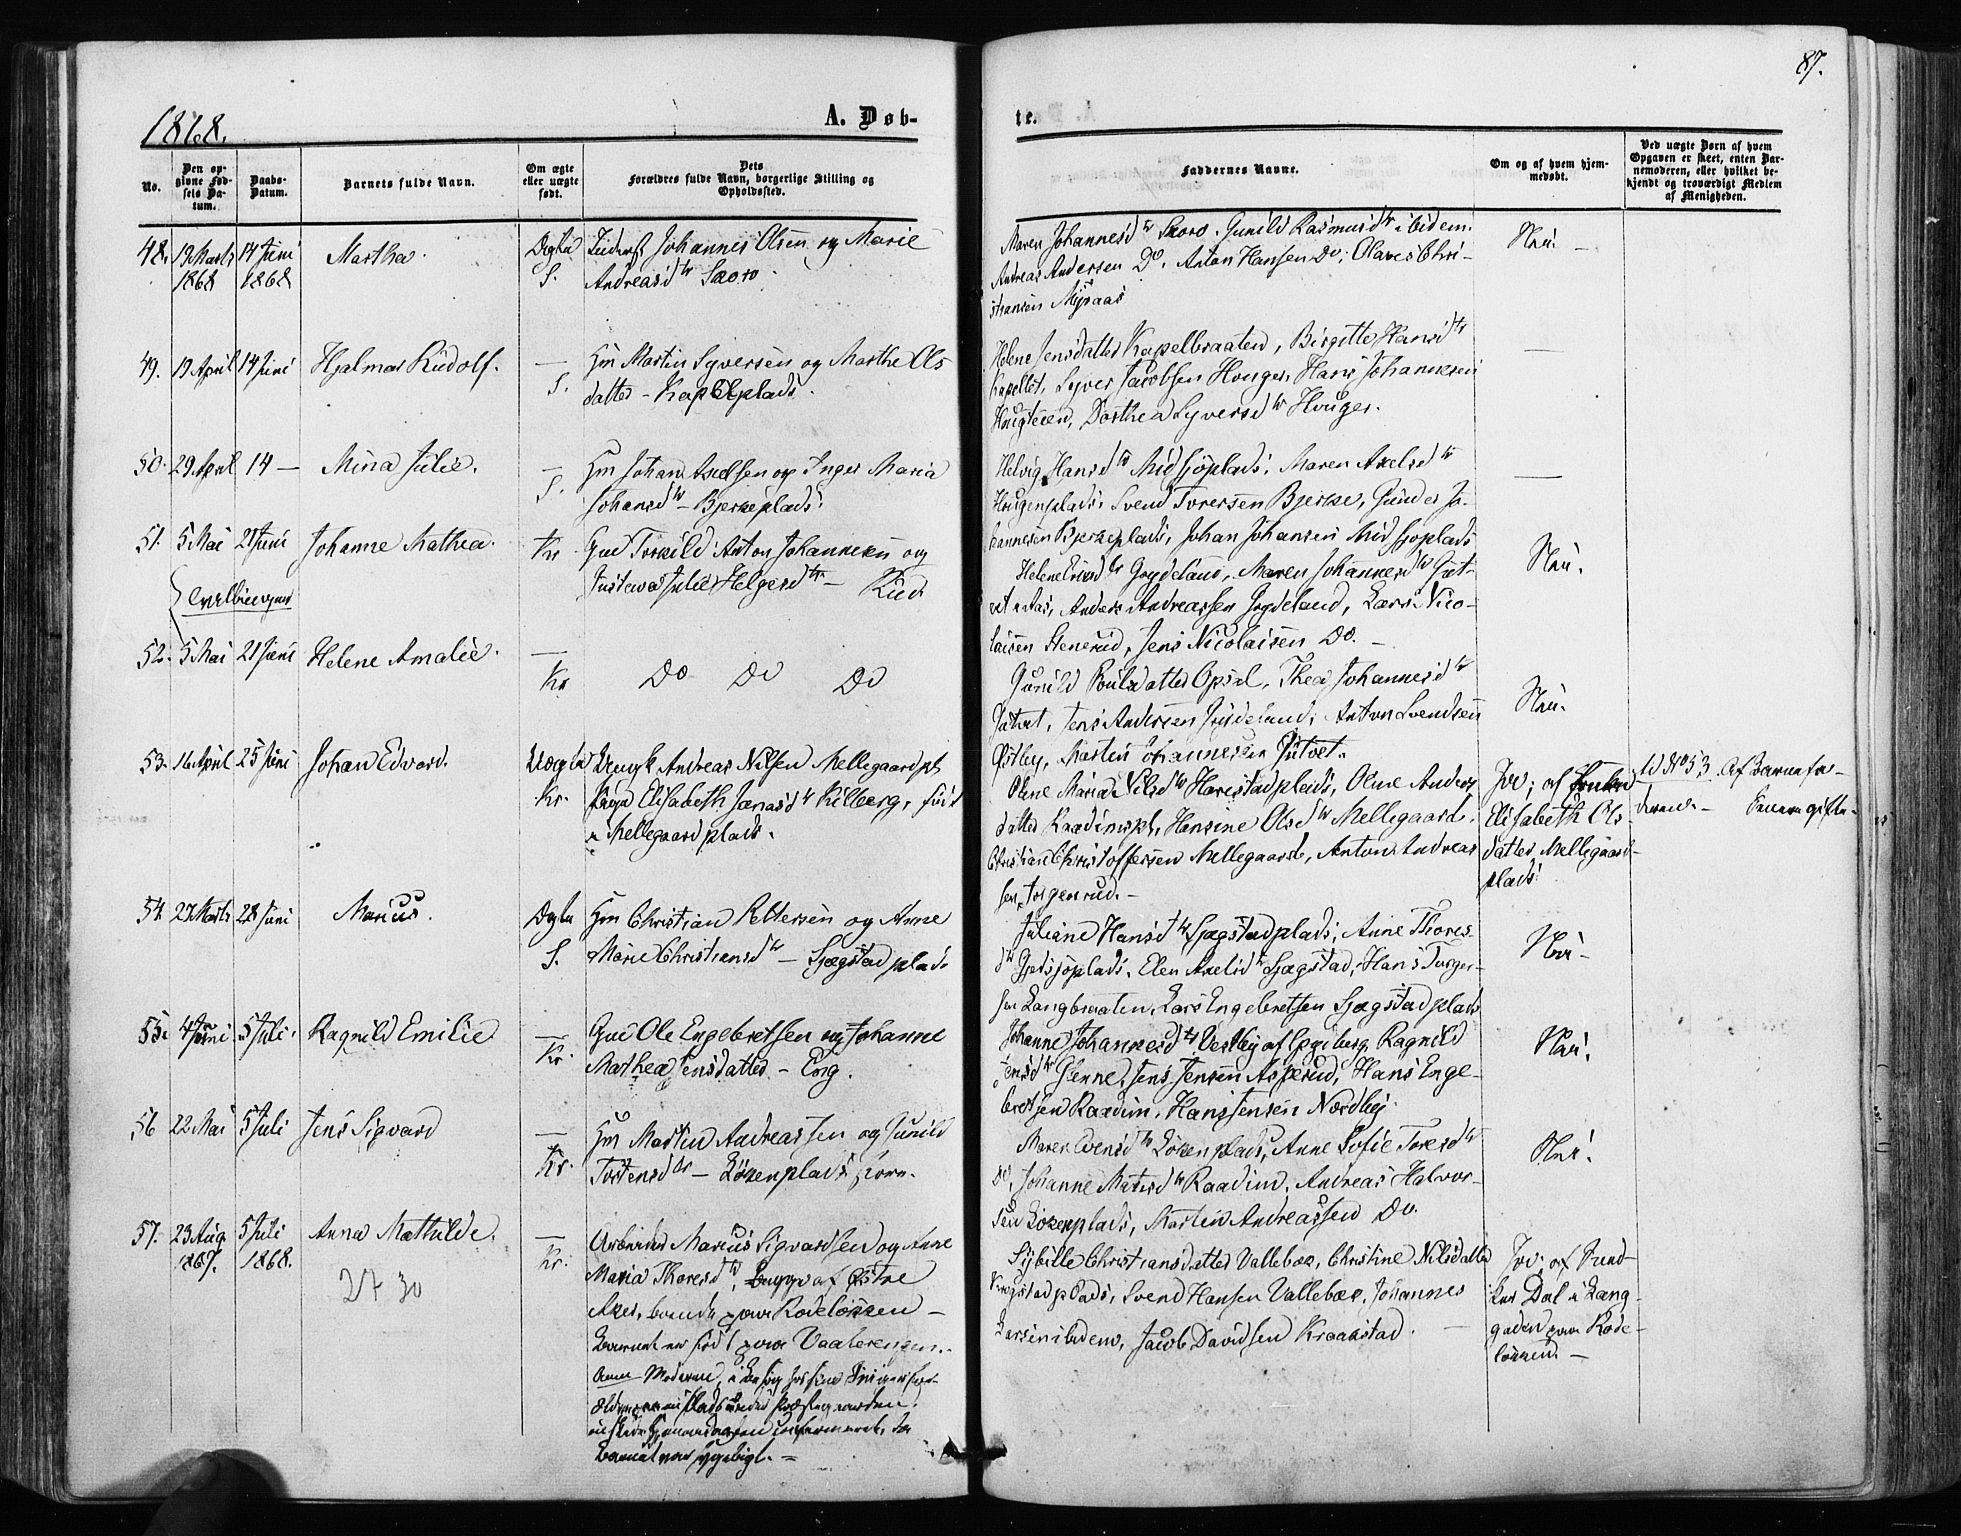 87.
1868.
A. Døb-
te.
No.
Den op-
givne Fød-
sels Da-
tum.
Daabs-
Datum.
Barnets fulde Navn.
Om ægte
eller uægte
født.
Dets
Forældres fulde Navn, borgerlige Stilling og
Opholdssted.
Faddernes Navne.
Om og af hvem hjem-
medøbt.
Ved uægte Børn af hvem
Opgaven er skeet, enten Bar-
nemoderen, eller hvilket be-
kjendt og troværdigt Medlem
af Menigheden.
48. 13 Marts 14 Juni Martha. Ægte Johannes Olsen og Marie
1868 1868 S. Andreasdtr Skoro.
Maren Johannesdtr Skoro. Gunild Rasmusdtr ibidem. Nei. —
Andreas Andersen Do. Anton Hansen Do, Olaves Chri-
stiansen Mysaas
49. 19 April 14 Juni Hjalmar Rudolf. — Hm Martin Syversen og Marthe Ols
S. datter – Kapelplads.
Helene Jensdatter Kapelbraaten, Birgitte Hansdtr —
Kapellet, Syver Jacobsen Houger, Hans Johannesen
Dorthea Syversdtr Houger.
50. 29 April 14 — Mina Julie. — Hm Johan Axelsen og Inger Maria
S. Johansdtr – Bjerkeplads.
Helvig Hansdtr Midsjøplads, Maren Axelsdtr —
Hougenplads, Svend Torersen Bjerke, Gunder Jo-
hannesen Bjerkeplads, Johan Johansen Midsjøplads
51. 5 Mai 21 Juni Johanne Mathea. Kr. Gmd Torkild Anton Johannesen og
Gustava Julie Helgesdtr – Rud
{ Tvillinger
Helene Eriksdtr Gryteland, Maren Johannesdtr Gut- Nei.
vet Anders Andreassen Grydeland, Lars Nico-
laisen Stenerud, Jens Nicolaisen Do. —
52. 5 Mai 21 Juni Helene Amalie. —
Kr Do Do Do
Gunild Poulsdatter Opsal, Thea Johannesdtr Nei.
Jens Andersen Anton Svendsen
Østby, Martin Johannesen Gutvet.
53. 16 April 25 Juni Johan Edvard. Uægte Ungk Andreas Nilsen Mellegaardpl
Kr. Pigen Elisabeth Jonasdtr Kilberg, født
i Mellegaardplads.
Oline Maria Nilsdtr Harestadplads, Oline Anders
datter Raadimspl, Hansine Olsdtr Mellegaard.
Christian Christoffersen Mellegaard, Anton Andreas
sen Torgenrud. —
Jov; af
Elisabeth Ols-
datter Mellegaard-
plads.
til No 53. Af Barnefa-
deren. —
54. 27 Marts 28 Juni Marius. Ægte Hm Christian Pettersen og Anne
S. Marie Christiansdtr – Sjøgstad plads
Juliane Hansdtr Sjøgstadplads, Anne Thores- Nei –
dtr Gjedsjøplads. Elen Axelsdtr Sjøgstad, Hans Torger-
sen Langbraaten, Lars Engebretsen Sjøgstadplads
55. 4 Juni 5 Juli. Ragnild Emilie — Gmd Ole Engebretsen og Johanne
Kr. Mathea Jensdatter – Eng.
Johanne Johannesdtr Vestby af Eggiberg, Ragnild Nei.
Jensdtr Glenne, Jens Jensen Asperud, Hans Enge-
bretsen Raadim, Hans Jensen Nordby
56 22 Mai 5 Juli Jens Sigvard — Hm Martin Andreassen og Gunild
Kr. Torstensdtr – Løkenplads,
Maren Evensdtr Løkenplads, Anne Sofie Toresdtr Nei.
Do, Johanne Matisdtr Raadim, Andreas Halvor-
sen Løkenplads, Martin Andreassen Do.
57. 23 Aug 5 Juli Anna Mathilde. — Arbeider Marius Sigvardsen og Anne
1867. 1868. Kr. Maria Thoresdtr, af Østre
27 30
Aker, boende paa Rodeløkken –
Barnet er født paa Vaalerengen.
Moderen i Besøg hos sine For-
ældre
Barnet var sygeligt. –
Sybille Christiansdatter Vallebæk, Christine Nilsdatter Jov; af Sned-
Krogstadplads, Svend Hansen Vallebæk, Johannes ker Dal i Lang-
Larsen ibidem, Jacob Davidsen Kraakstad. — gaden paa Rode-
løkken. –